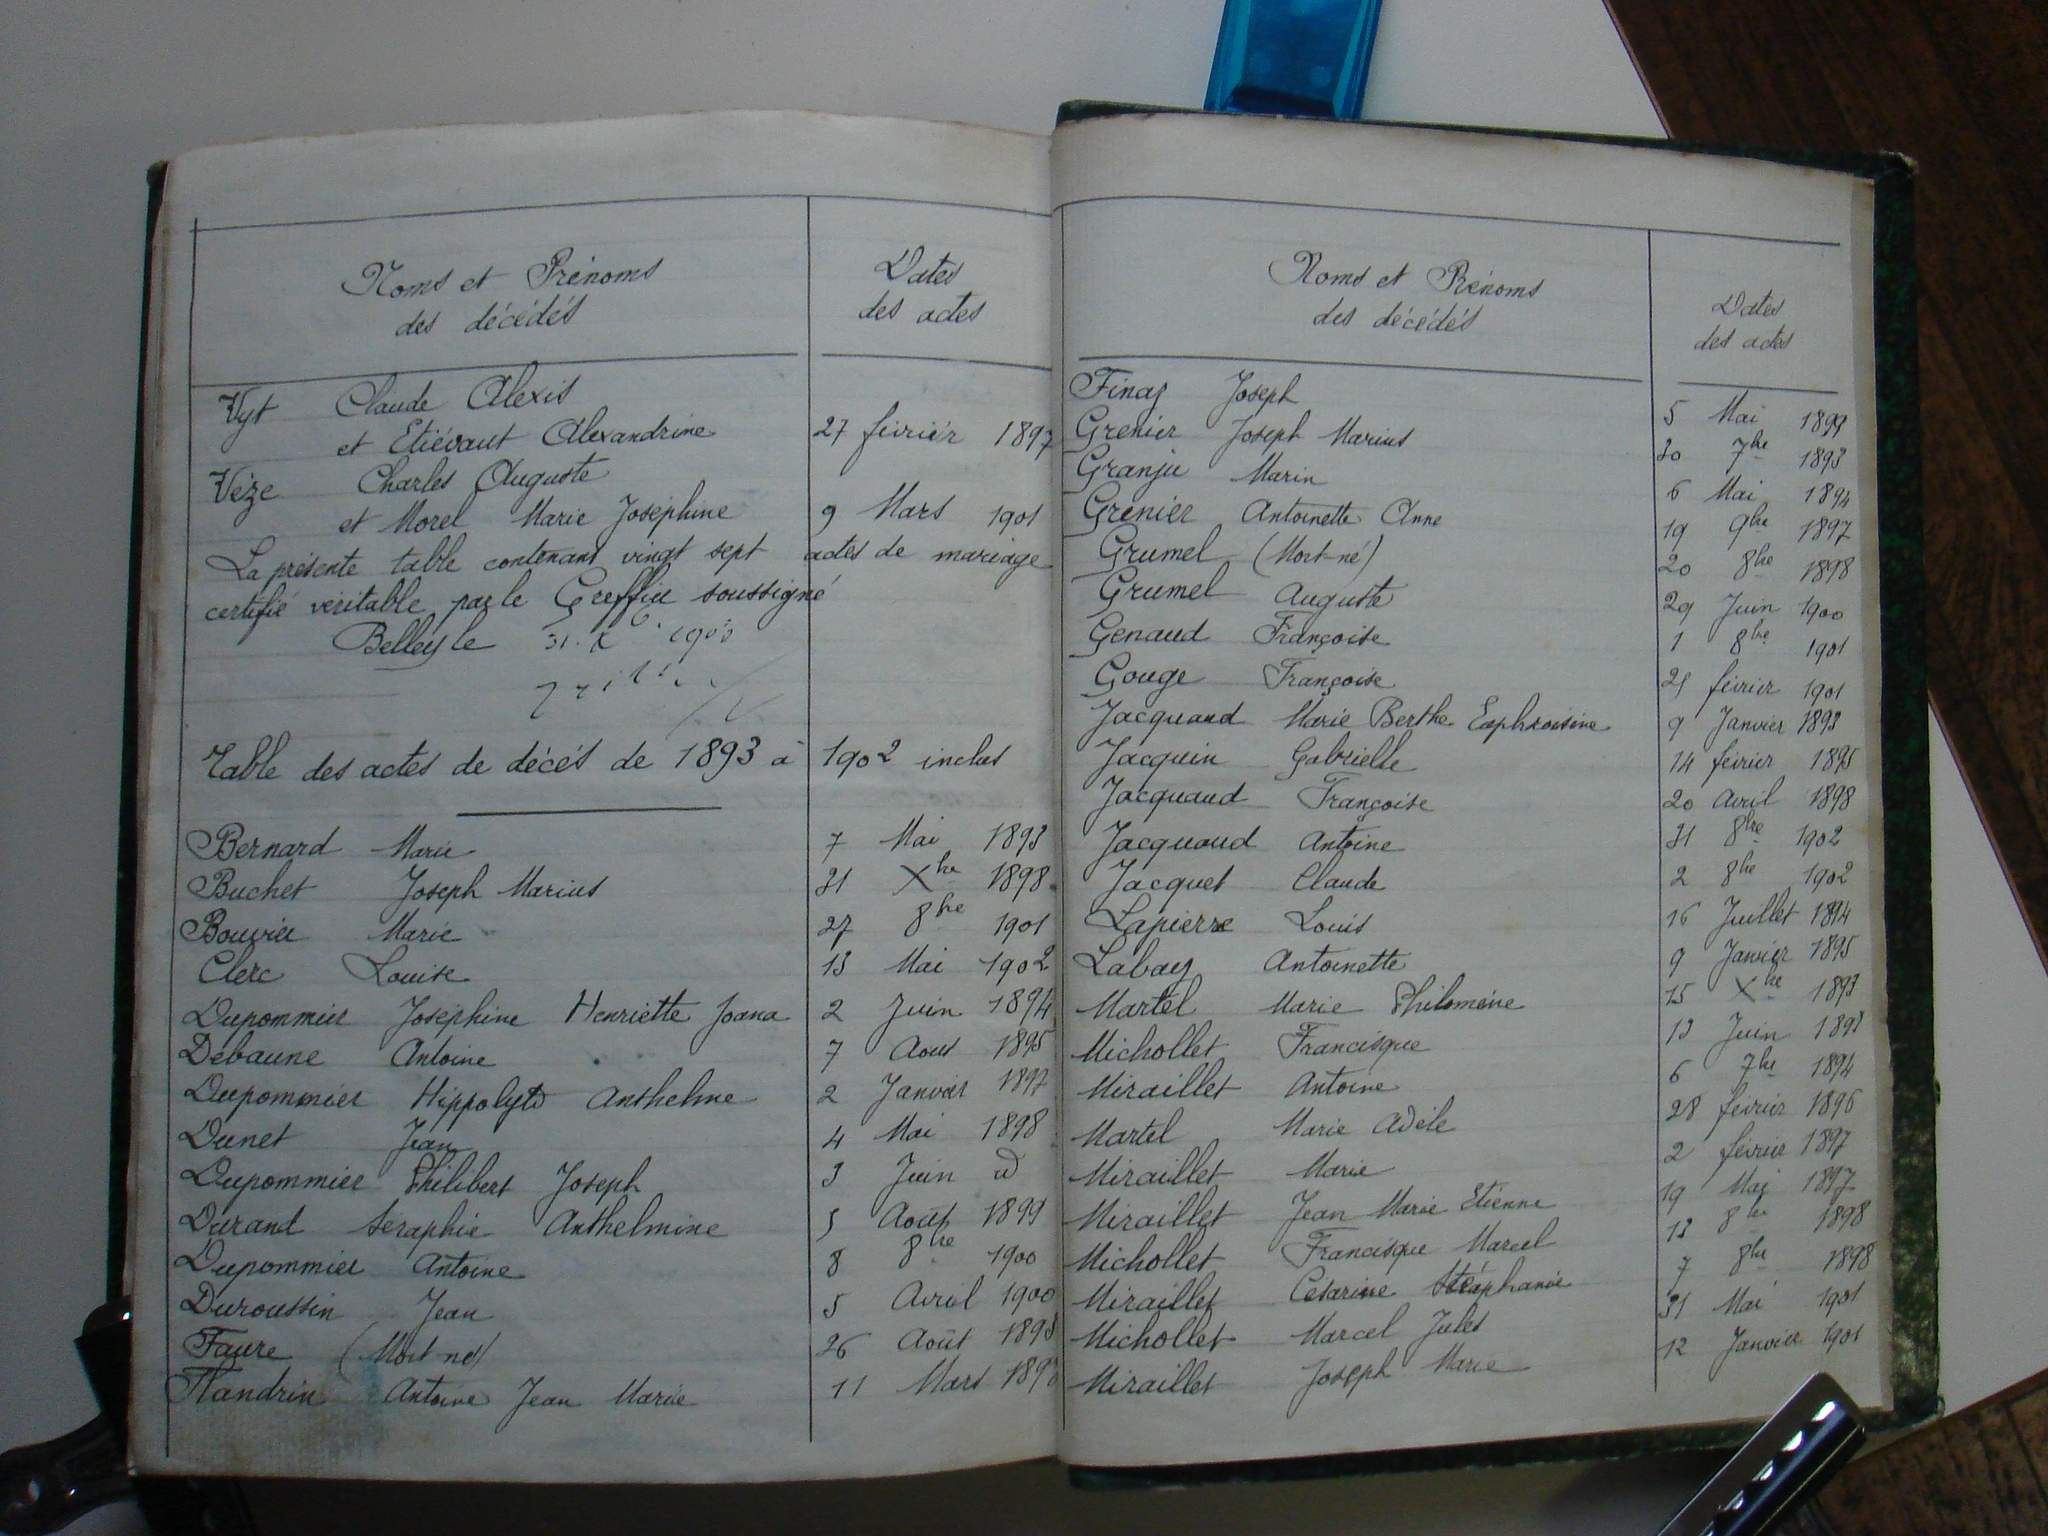 Noms et Prénoms
des décédés
Dates
des actes
Vyt Claude Alexis
et Etiévant Alexandrine 27 février 1897
Vèze Charles Auguste
et Morel Marie Joséphine 9 Mars 1901
La présente table contenant vingt sept actes de mariage
certifié véritable par le Greffier soussigné
Belley le 31. X 1903
Table des actes de décès de 1893 à 1902 inclus
Bernard Marie 7 Mai 1893
Buchet Joseph Marius 31 Xbre 1898
Bouvier Marie 27 8bre 1901
Clerc Louise 13 Mai 1902
Dupommier Joséphine Henriette Joana 2 Juin 1894
Debaune Antoine 7 Aout 1895
Dupommier Hippolyte Anthelme 2 Janvier 1897
Dunet Jean 4 Mai 1898
Dupommier Philibert Joseph 3 Juin d
Durand Séraphie Anthelmine 5 Août 1899
Dupommier Antoine 8 8bre 1900
Duroussin Jean 5 Avril 1900
Faure (Mort né) 26 Août 1893
Flandrin Antoine Jean Marie 11 Mars
Noms et Prénoms
des décédés
Dates
des actes
Finaz Joseph 5 Mai 1899
Grenier Joseph Marius 30 7bre 1893
Granju Marin 6 Mai 1894
Grenier Antoinette Anne 19 9bre 1897
Grumel (Mort-né) 20 8bre 1898
Grumel Auguste 29 Juin 1900
Genaud Françoise 1 8bre 1901
Gouge Françoise 25 février 1901
Jacquand Marie Berthe Euphroisine 9 Janvier 1893
Jacquin Gabrielle 14 février 1895
Jacquand Françoise 20 Avril 1898
Jacquand Antoine 31 8bre 1902
Jacquet Claude 2 8bre 1902
Lapierre Louis 16 Juillet 1894
Labay Antoinette 9 Janvier 1895
Martel Marie Philomène 15 Xbre 1893
Michollet Francisque 13 Juin 1893
Miraillet Antoine 6 7bre 1894
Martel Marie Adèle 28 février 1896
Miraillet Marie 2 février 1897
Miraillet Jean Marie Etienne 19 Mai 1897
Michollet Francisque Marcel 13 8bre 1898
Miraillet Césarine Stéphanie 7 8bre 1898
Michollet Marcel Jules 31 Mai 1901
Miraillet Joseph Marie 12 Janvier 1901